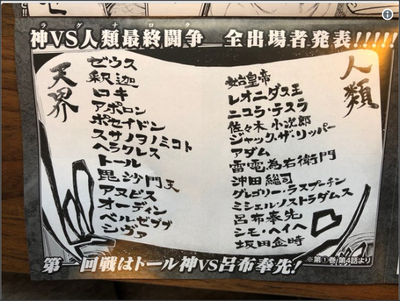 ラグナロク
神VS人類最終闘争 全出場者発表!!!!!
天界
ゼウス
釈迦
ロキ
アポロン
ポセイドン
スサノヲノミコト
ヘラクレス
トール
毘沙門天
アヌビス
オーディン
ベルゼブブ
シヴァ
人類
始皇帝
レオニダス王
ニコラ・テスラ
佐々木小次郎
ジャック・ザ・リッパー
アダム
雷電為右衛門
沖田総司
グレゴリー・ラスプーチン
ミシェル・ノストラダムス
呂布奉先
シモ・ヘイヘ
坂田金時
※第1巻 第4話より
第一回戦はトール神VS呂布奉先!